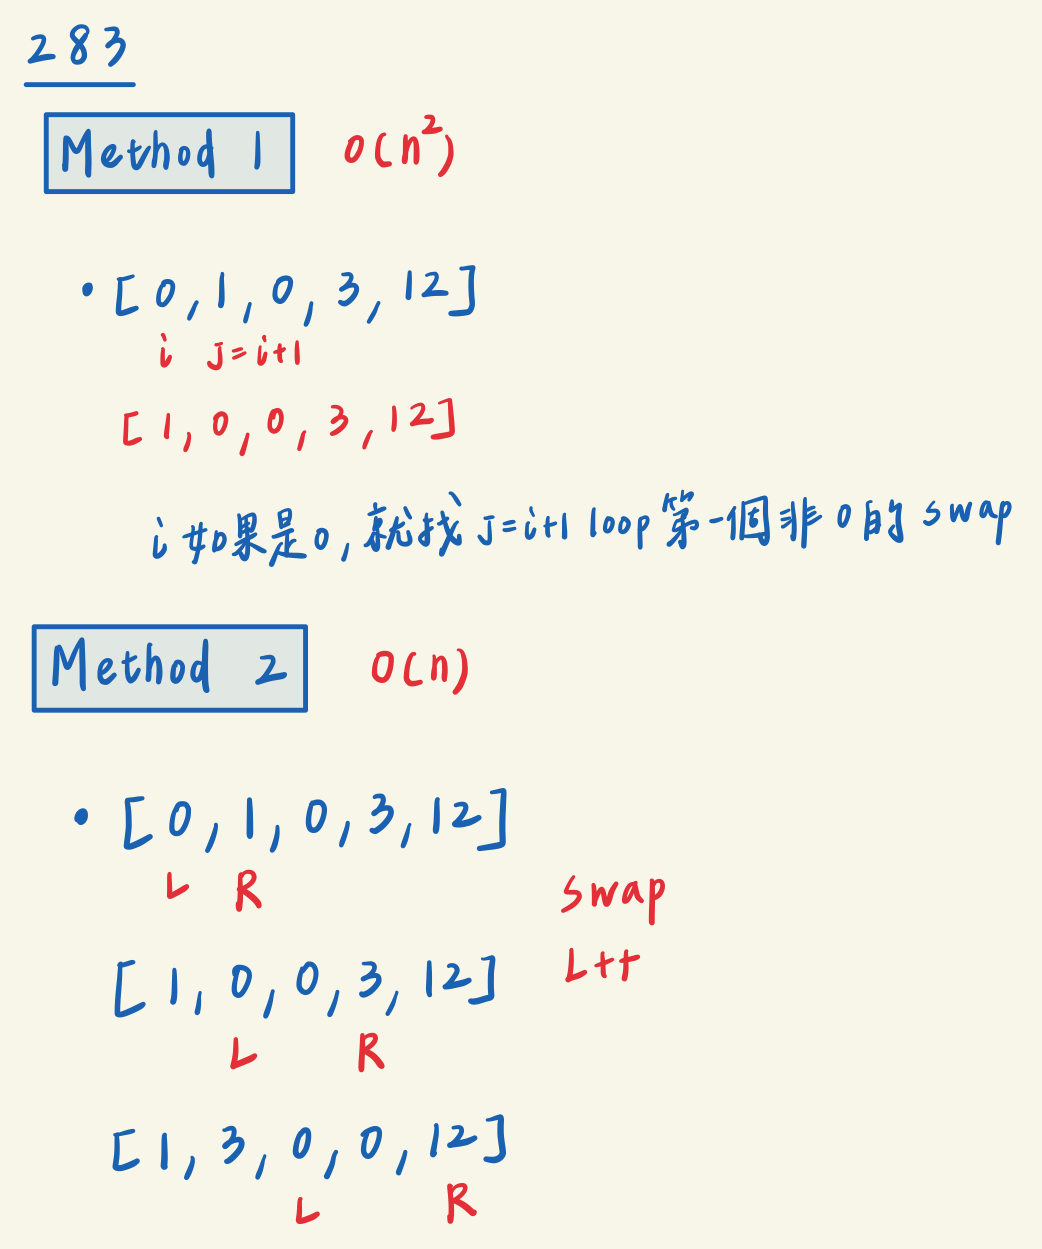 283
Method 1 O(n²)
• [0, 1, 0, 3, 12]
i j=i+1
[1, 0, 0, 3, 12]
i 如果是0, 就找 j=i+1 loop 第一個非0的 swap
Method 2 O(n)
• [0, 1, 0, 3, 12]
L R
swap
[1, 0, 0, 3, 12]
L++
L R
[1, 3, 0, 0, 12]
L R